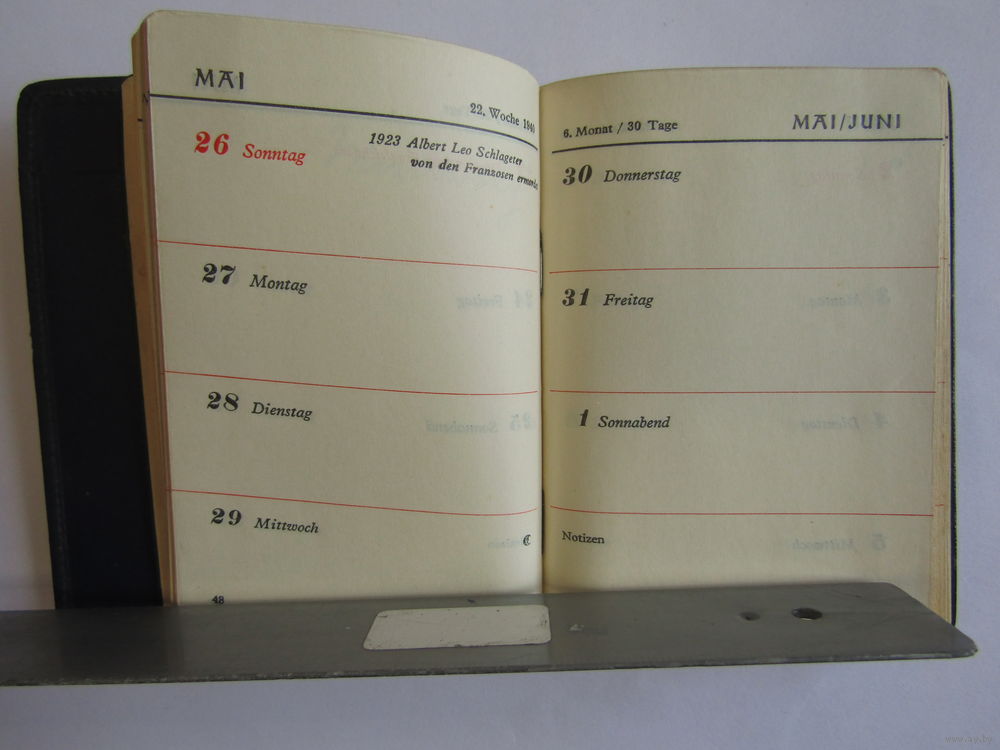 MAI
22. Woche 1940
26 Sonntag
1923 Albert Leo Schlageter
von den Franzosen
27 Montag
28 Dienstag
29 Mittwoch
48
6. Monat / 30 Tage
MAI/JUNI
30 Donnerstag
31 Freitag
1 Sonnabend
Notizen